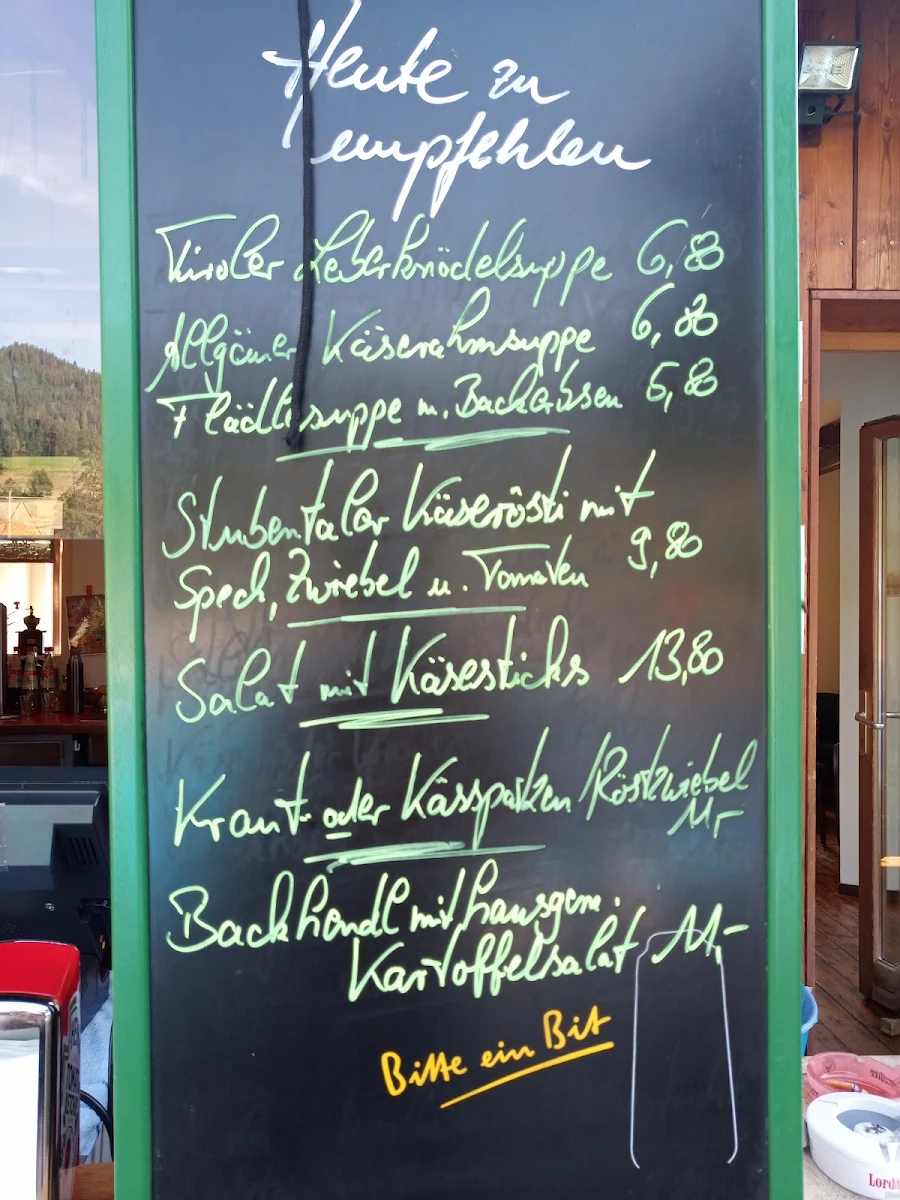 Heute zu
empfehlen
Tiroler Leberknödelsuppe 6,80
Allgäuer Käserahmsuppe 6,80
Flädlesuppe u. Backerbsen 6,80
Stubentaler Käserösti mit
Speck, Zwiebel u. Tomaten 9,80
Salat mit Käsesticks 13,80
Kraut- oder Kässpatzen /Röstzwiebel
11,-
Backhendl mit hausgem.
Kartoffelsalat 11,-
Bitte ein Bit